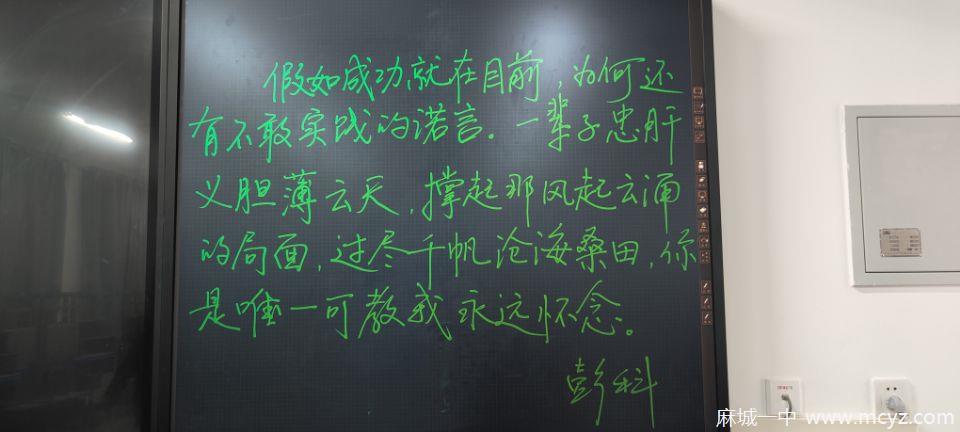 假如成功就在目前,为何还
有不敢实践的诺言。一辈子忠肝
义胆薄云天,撑起那风起云涌
的局面,过尽千帆沧海桑田,你
是唯一可教我永远怀念。
彭科
麻城一中 www.mcyz.com